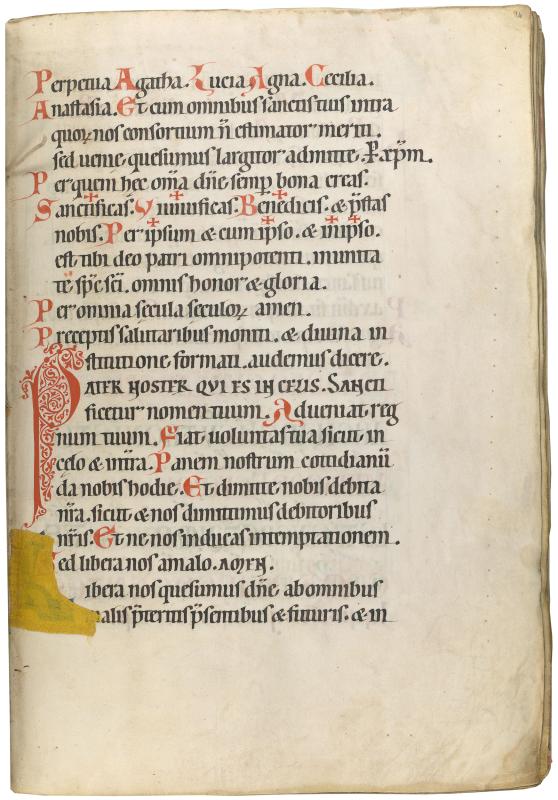 Perpetua Agatha. Lucia Agna. Cecilia.
Anastasia. Et cum omnibus sanctis tuis intra
quoꝝ nos consortium n̄ estimator meriti.
sed uenie quesumus largitor admitte. Ꝑ xp̄m.
Per quem hec om̄a dn̄e semꝑ bona creas.
Sanctificas. Viuificas. Benedicis. & p̄stas
nobis. Per ipsum & cum ipso. & in ipso.
est tibi deo patri omnipotenti. in unita
te sp̄c sc̄i. omnis honor & gloria.
Per omnia secula seculoꝝ amen.
Preceptis salutaribus moniti. & diuina in
stitutione formati. audemus dicere.
PATER NOSTER QVI ES IN CELIS. Sancti
ficetur nomen tuum. Adueniat reg
num tuum. Fiat uoluntas tua sicut in
celo & in t̄ra. Panem nostrum cottidianū
da nobis hodie. Et dimitte nobis debita
nr̄a. sicut & nos dimittimus debitoribus
nr̄is. Et ne nos inducas in temptationem.
Sed libera nos a malo. AMEN.
ibera nos quesumus dn̄e ab omnibus
malis p̄teritis p̄sentibus & futuris. & in